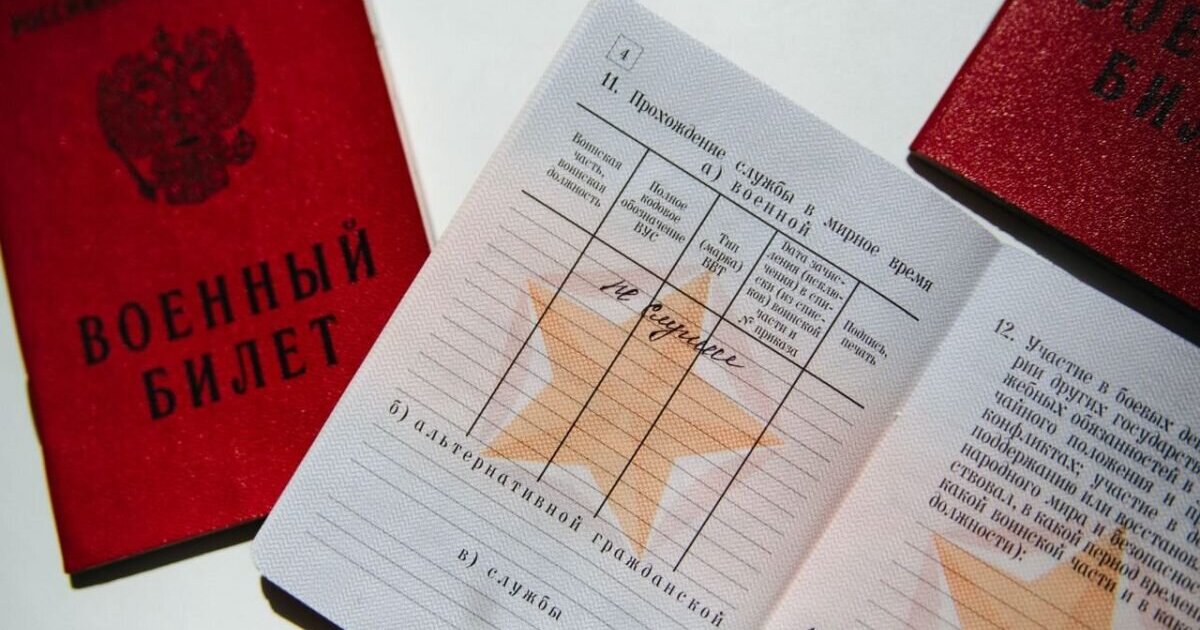 ВОЕННЫЙ
БИЛЕТ
4
11. Прохождение службы в мирное время
а) военной
Воинская
часть,
воинская
должность
Полное
кодовое
обозначение
ВУС
Тип
(марка)
ВВТ
Дата зачис-
ления (исклю-
чения) в спи-
ски (из спис-
ков) воинской
части и
№ приказа
Подпись,
печать
не служил
б) альтернативной гражданской
в) службы
12. Участие в боевых
рии других государств
жебных обязанностей в
чайного положения и
конфликтах; участие в
поддержанию или восстанов
народного мира и безопасно
ствовал, в какой период времен
какой воинской части и в как
должности):
ВОЕ
БИ